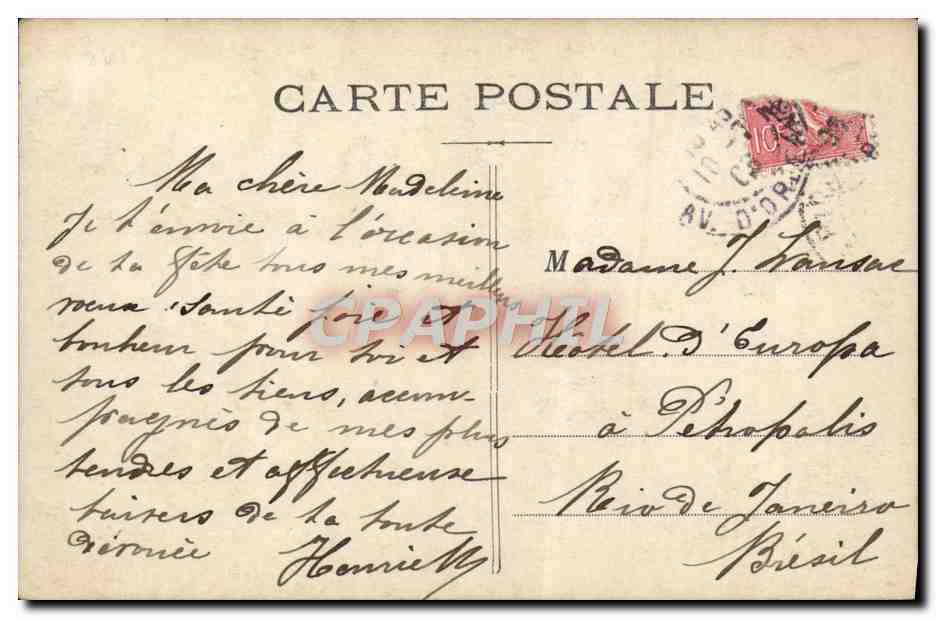 CARTE POSTALE
10
AV. D'OR
Ma chère Madeleine
Je t'envoie à l'occasion
de ta fête tous mes meilleurs
voeux. Santé joie et
bonheur pour toi et
tous les tiens, accom-
pagnés de mes plus
tendres et affectueuse
baisers de ta toute
dévouée Henriette
Madame J. Lansac
Hôtel. d'Europa
à Pétropolis
Rio de Janeiro
Brésil
CPAPHIL